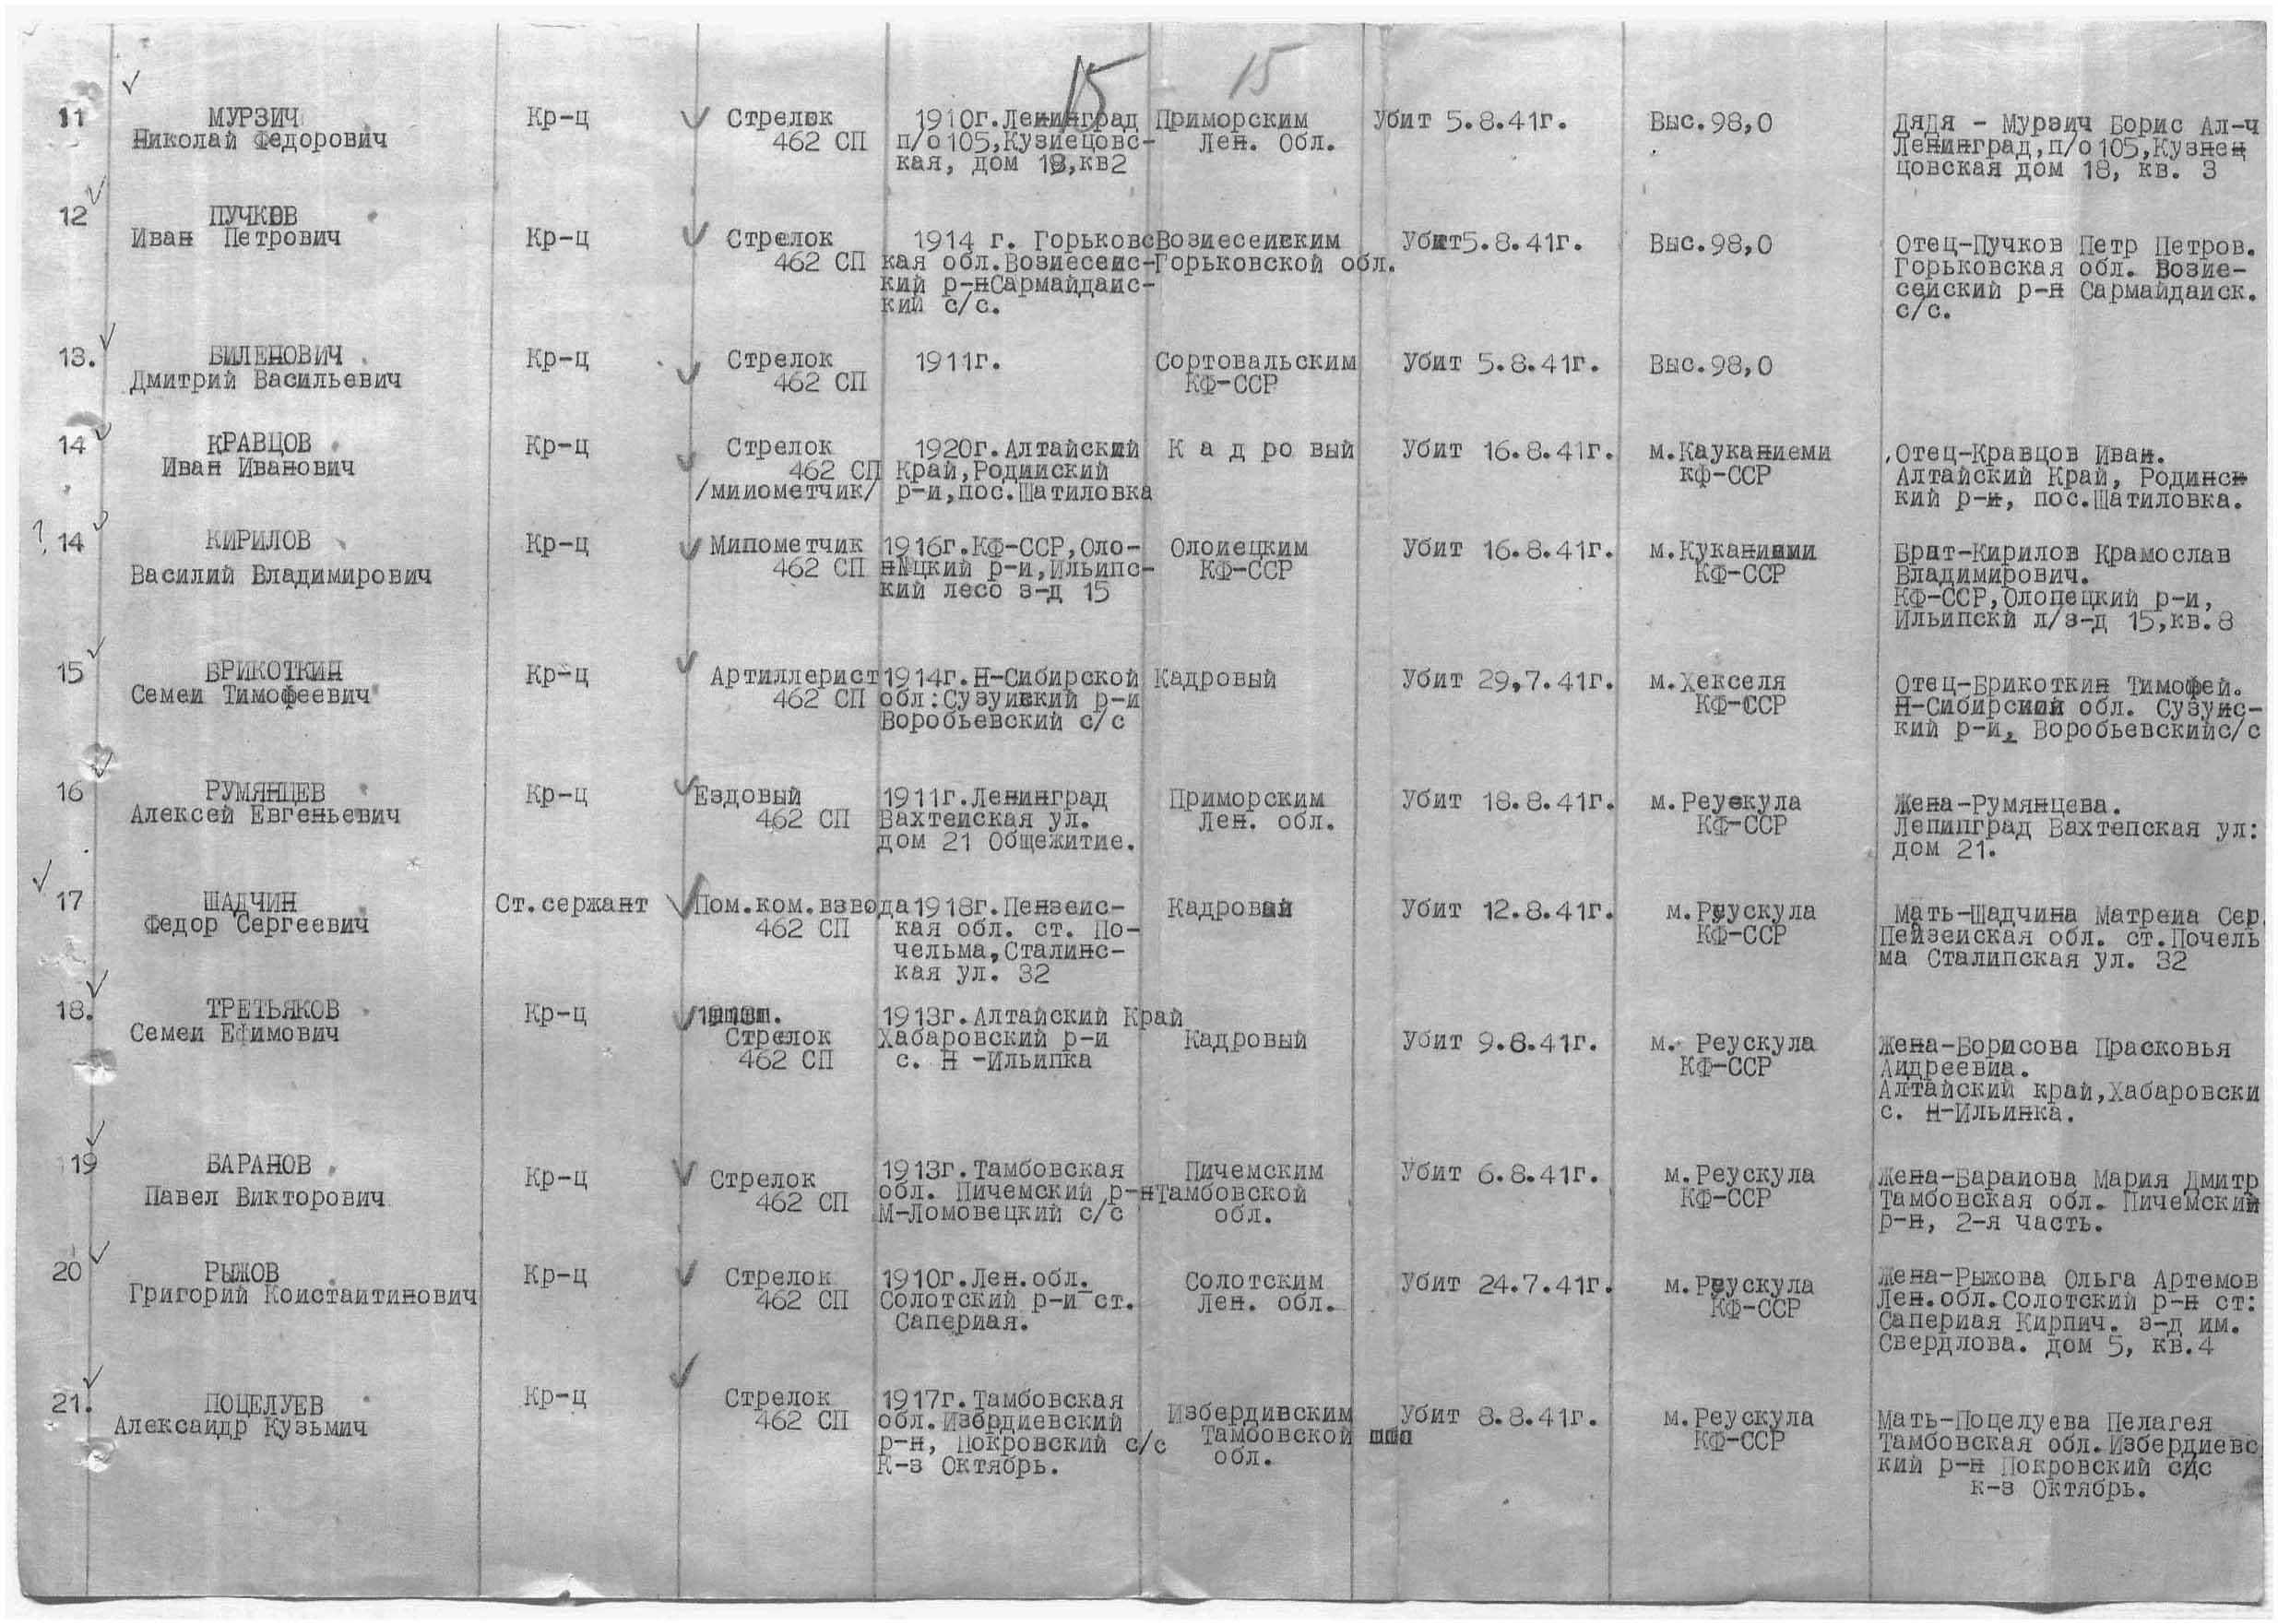 15 15
11 МУРЗИЧ Кр-ц Стрелок 1910г.Ленинград Приморским Убит 5.8.41г. Выс.98,0 ДяДя - Мурзич Борис Ал-ч
Николай Федорович 462 СП п/о105,Кузиецовс- Лен. Обл. Ленинград,п/о105,Кузнец
кая, дом 18,кв2 цовская дом 18, кв. 3
12 ПУЧКОВ
Иван Петрович Кр-ц Стрелок 1914 г. Горьковс Возиесеиским Убит5.8.41г. Выс.98,0 Отец-Пучков Петр Петров.
462 СП кая обл.Возиесеис- Горьковской обл. Горьковская обл. Возие-
кий р-нСармайдаис- сеиский р-н Сармайдаиск.
кий с/с. с/с.
13. БИЛЕНОВИЧ Кр-ц Стрелок 1911г. Сортовальским Убит 5.8.41г. Выс.98,0
Дмитрий Васильевич 462 СП КФ-ССР
14 КРАВЦОВ Кр-ц Стрелок 1920г.Алтайский К а д ро вый Убит 16.8.41г. м.Кауканиеми Отец-Кравцов Иван.
Иван Иванович 462 СП Край,Родииский КФ-ССР Алтайский Край, Родинсн
/мииометчик/ р-и,пос.Шатиловка кий р-и, пос.Шатиловка.
? 14 КИРИЛОВ Кр-ц Мипометчик 1916г.КФ-ССР,Оло- Олоиецким Убит 16.8.41г. м.Куканиями Брат-Кирилов Крамослав
Василий Владимирович 462 СП нецкий р-и,Ильипс- КФ-ССР КФ-ССР Владимирович.
кий лесо з-д 15 КФ-ССР,Олопецкий р-и,
Ильипски л/з-д 15,кв.8
15 БРИКОТКИН Кр-ц Артиллерист 1914г.Н-Сибирской Кадровый Убит 29,7.41г. м.Хекселя Отец-Брикоткин Тимофей.
Семеи Тимофеевич 462 СП обл:Сузуиский р-и КФ-ССР Н-Сибирсиой обл. Сузуис-
Воробьевский с/с кий р-и, Воробьевскийс/с
16 РУМЯНЦЕВ Кр-ц Ездовый 1911г.Ленинград Приморским Убит 18.8.41г. м.Реускула Жена-Румянцева.
Алексей Евгеньевич 462 СП Вахтеиская ул. Лен. обл. КФ-ССР Лепипград Вахтепская ул:
дом 21 Общежитие. дом 21.
17 ШАДЧИН Ст.сержант Пом.ком.взвода 1918г.Пензеис- Кадровый Убит 12.8.41г. м.Реускула Мать-Шадчина Матреиа Сер.
Федор Сергеевич 462 СП кая обл. ст. По- КФ-ССР Пейзеиская обл. ст.Почель
чельма,Сталинс- ма Сталипская ул. 32
кая ул. 32
18. ТРЕТЬЯКОВ Кр-ц 1913г.Алтайский Край
Семеи Ефимович Стрелок Хабаровский р-и Кадровый Убит 9.8.41г. м. Реускула Жена-Борисова Прасковья
462 СП с. Н -Ильипка КФ-ССР Аидреевиа.
Алтайский край,Хабаровски
с. Н-Ильинка.
19 БАРАНОВ Кр-ц Стрелок 1913г.Тамбовская Пичемским Убит 6.8.41г. м.Реускула Жена-Бараиова Мария Дмитр
Павел Викторович 462 СП обл. Пичемский р-н Тамбовской КФ-ССР Тамбовская обл. Пичемский
М-Ломовецкий с/с обл. р-н, 2-я часть.
20 РЫЖОВ Кр-ц Стрелок 1910г.Лен.обл. Солотским Убит 24.7.41г. м.Реускула Жена-Рыжова Ольга Артемов
Григорий Коистаитинович 462 СП Солотский р-и ст. Лен. обл. КФ-ССР Лен.обл.Солотский р-н ст:
Сапериая. Сапериая Кирпич. з-д им.
Свердлова. дом 5, кв.4
21. ПОЦЕЛУЕВ Кр-ц Стрелок 1917г.Тамбовская Избердивским Убит 8.8.41г. м.Реускула Мать-Поцелуева Пелагея
Алексаидр Кузьмич 462 СП обл.Избрдиевский Тамбовской КФ-ССР Тамбовская обл.Избердиевс
р-н, Покровский с/с обл. кий р-н Покровский сдс
К-з Октябрь. к-з Октябрь.